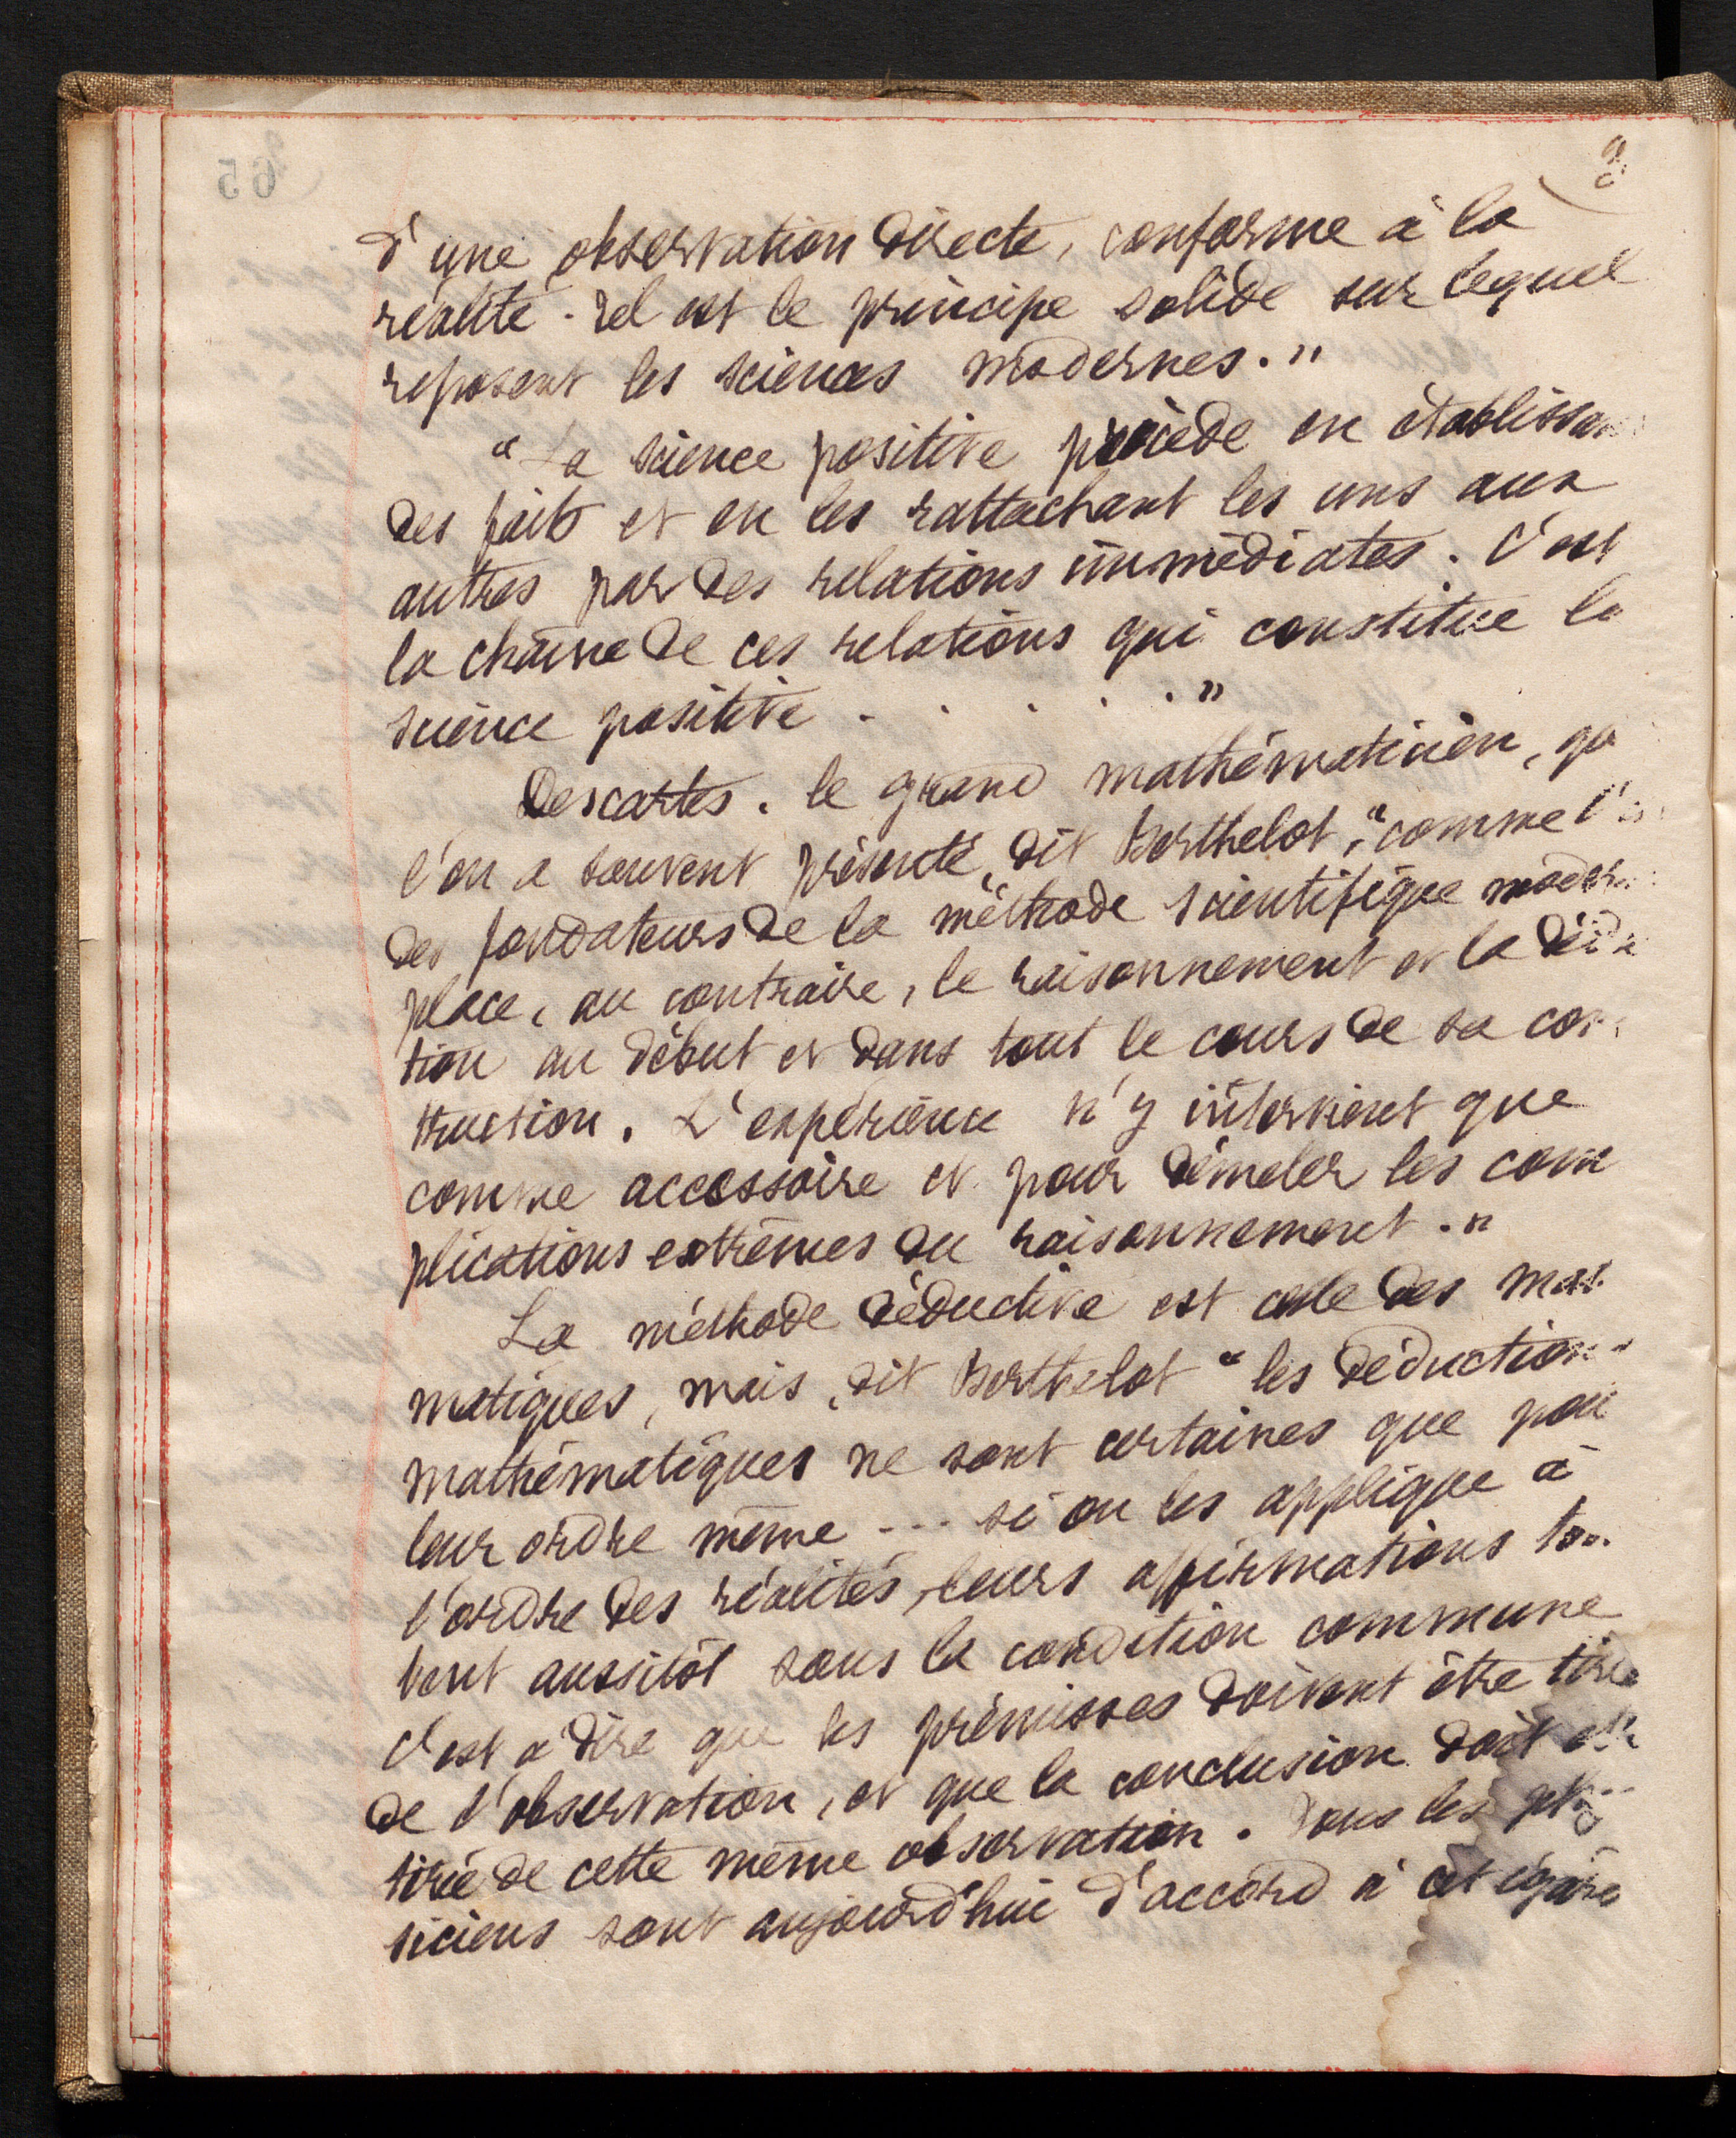 65
d'une observation directe, conforme à la
réalité. Tel est le principe solide sur lequel
reposent les sciences modernes."
"La science positive procède en établissan
des faits et en les rattachant les uns aux
autres par des relations immédiates. C'est
la chaîne de ces relations qui constitue la
science positive . . . . ."
Descartes. le grand mathématicien, qu
l'on a souvent présenté, dit Berthelot, "comme l'
des fondateurs de la méthode scientifique moder
place, au contraire, le raisonnement et la dédu
tion au début et dans tout le cours de sa cons
truction. L'expérience n'y intervient que
comme accessoire et pour démeler les com
plications extrêmes du raisonnement."
La méthode déductive est celle des mat
matiques, mais, dit Berthelot "les déductions
mathématiques ne sont certaines que pou
leur ordre même --- si on les applique à
l'ordre des réalités, leurs affirmations tom
bent aussitôt sous la condition commune
c'est à dire que les prémisses doivent être tirée
de l'observation, et que la conclusion doit etr
tirée de cette même observation. Tous les phy
siciens sont aujourd'hui d'accord à cet égard